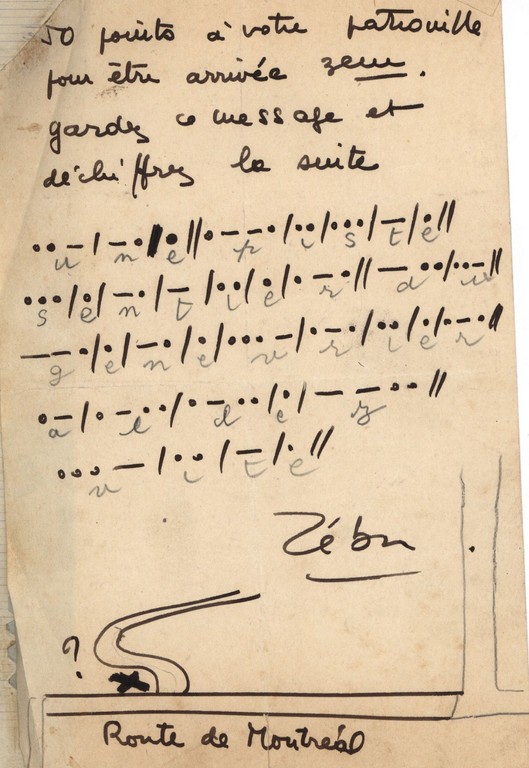 50 points à votre patrouille
pour être arrivée 2eme.
gardez ce message et
déchiffrez la suite
••—/—•/•//•——•/••/•••/—/•//
u n e p i s t e
•••/•/—•/—/••/•/•—•//—••/••—//
s e n t i e r d u
——•/•/—•/•/•••—/•—•/••/•/•—•//
g e n e v r i e r
•—/•—••/•—••/•/——••//
a l l e z
•••—/••/—/•//
v i t e
Zébu
?
Route de Montréal